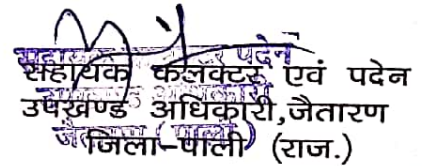 सहायक कलक्टर एवं पदेन
उपखण्ड अधिकारी,जैतारण
जिला-पाली (राज.)